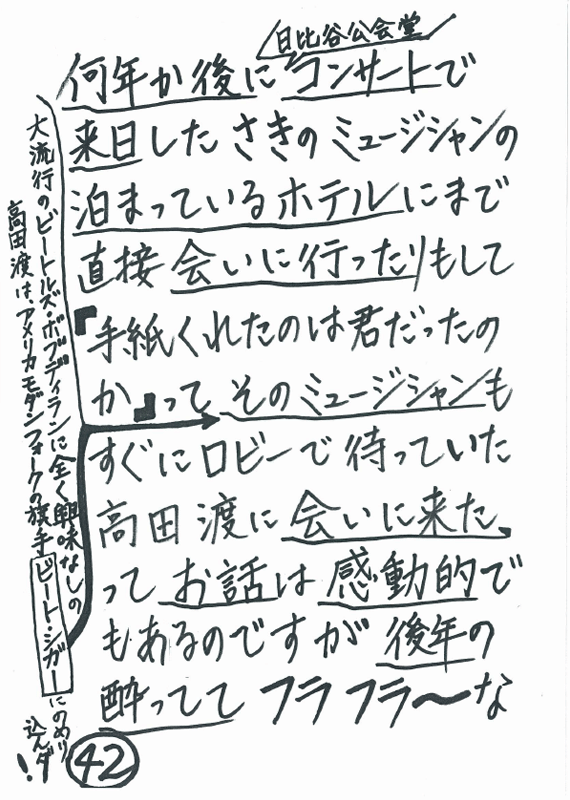 日比谷公会堂
何年か後にコンサートで
来日したさきのミュージシャンの
泊まっているホテルにまで
直接会いに行ったりもして
『手紙くれたのは君だったの
か』ってそのミュージシャンも
すぐにロビーで待っていた
高田渡に会いに来た。
ってお話は感動的で
もあるのですが後年の
酔っててフラフラ〜な
大流行のビートルズ・ボブディランに全く興味なしの
高田渡は、アメリカモダンフォークの旗手ピート・シガーにのめり
込んダ!
42